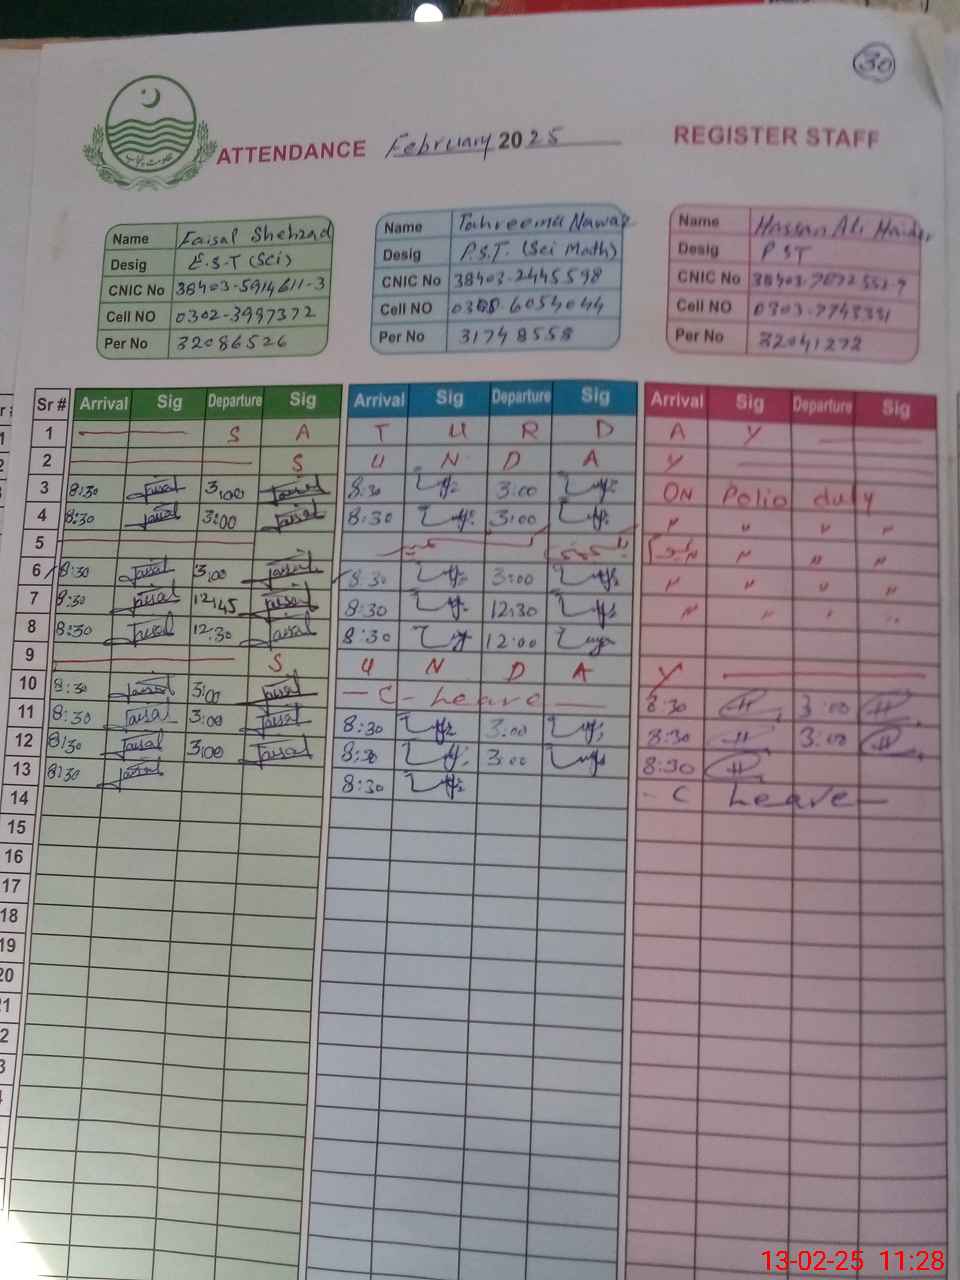 30
ATTENDANCE February 2025 REGISTER STAFF
Name Faisal Shehzad
Desig E.S.T (Sci)
CNIC No 38403-5914611-3
Cell NO 0302-3997372
Per No 32086526
Name Tahreema Nawaz
Desig P.S.T. (Sci Math)
CNIC No 38403-2445598
Cell NO 6054044
Per No 31748558
Name Hassan Ali Haider
Desig PST
CNIC No
Cell NO 0303-7743331
Per No 32041272
Sr # Arrival Sig Departure Sig Arrival Sig Departure Sig Arrival Sig Departure Sig
1 S A T U R D A Y
2 S U N D A Y
3 8:30 Faisal 3:00 Faisal 8:30 3:00 ON Polio duty
4 8:30 Faisal 3:00 Faisal 8:30 3:00 " " " "
5 " " "
6 8:30 Faisal 3:00 Faisal 8:30 3:00 " " " "
7 8:30 Faisal 12:45 Faisal 8:30 12:30 " " " "
8 8:30 Faisal 12:30 Faisal 8:30 12:00
9 S U N D A Y
10 8:30 Faisal 3:00 Faisal - C - Leave 8:30 H 3:00 H
11 8:30 Faisal 3:00 Faisal 8:30 3:00 8:30 H 3:00 H
12 8:30 Faisal 3:00 Faisal 8:30 3:00 8:30 H
13 8:30 Faisal 8:30 - C Leave -
14
15
16
17
18
19
20
21
13-02-25 11:28